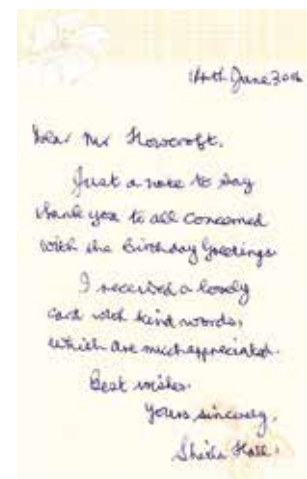 June 30th
Dear Mr Howcroft.
Just a note to say
thank you to all concerned
with the Birthday Greetings
I received a lovely
card with kind words,
which are much appreciated.
Best wishes.
Yours sincerely,
Sheila Hall.